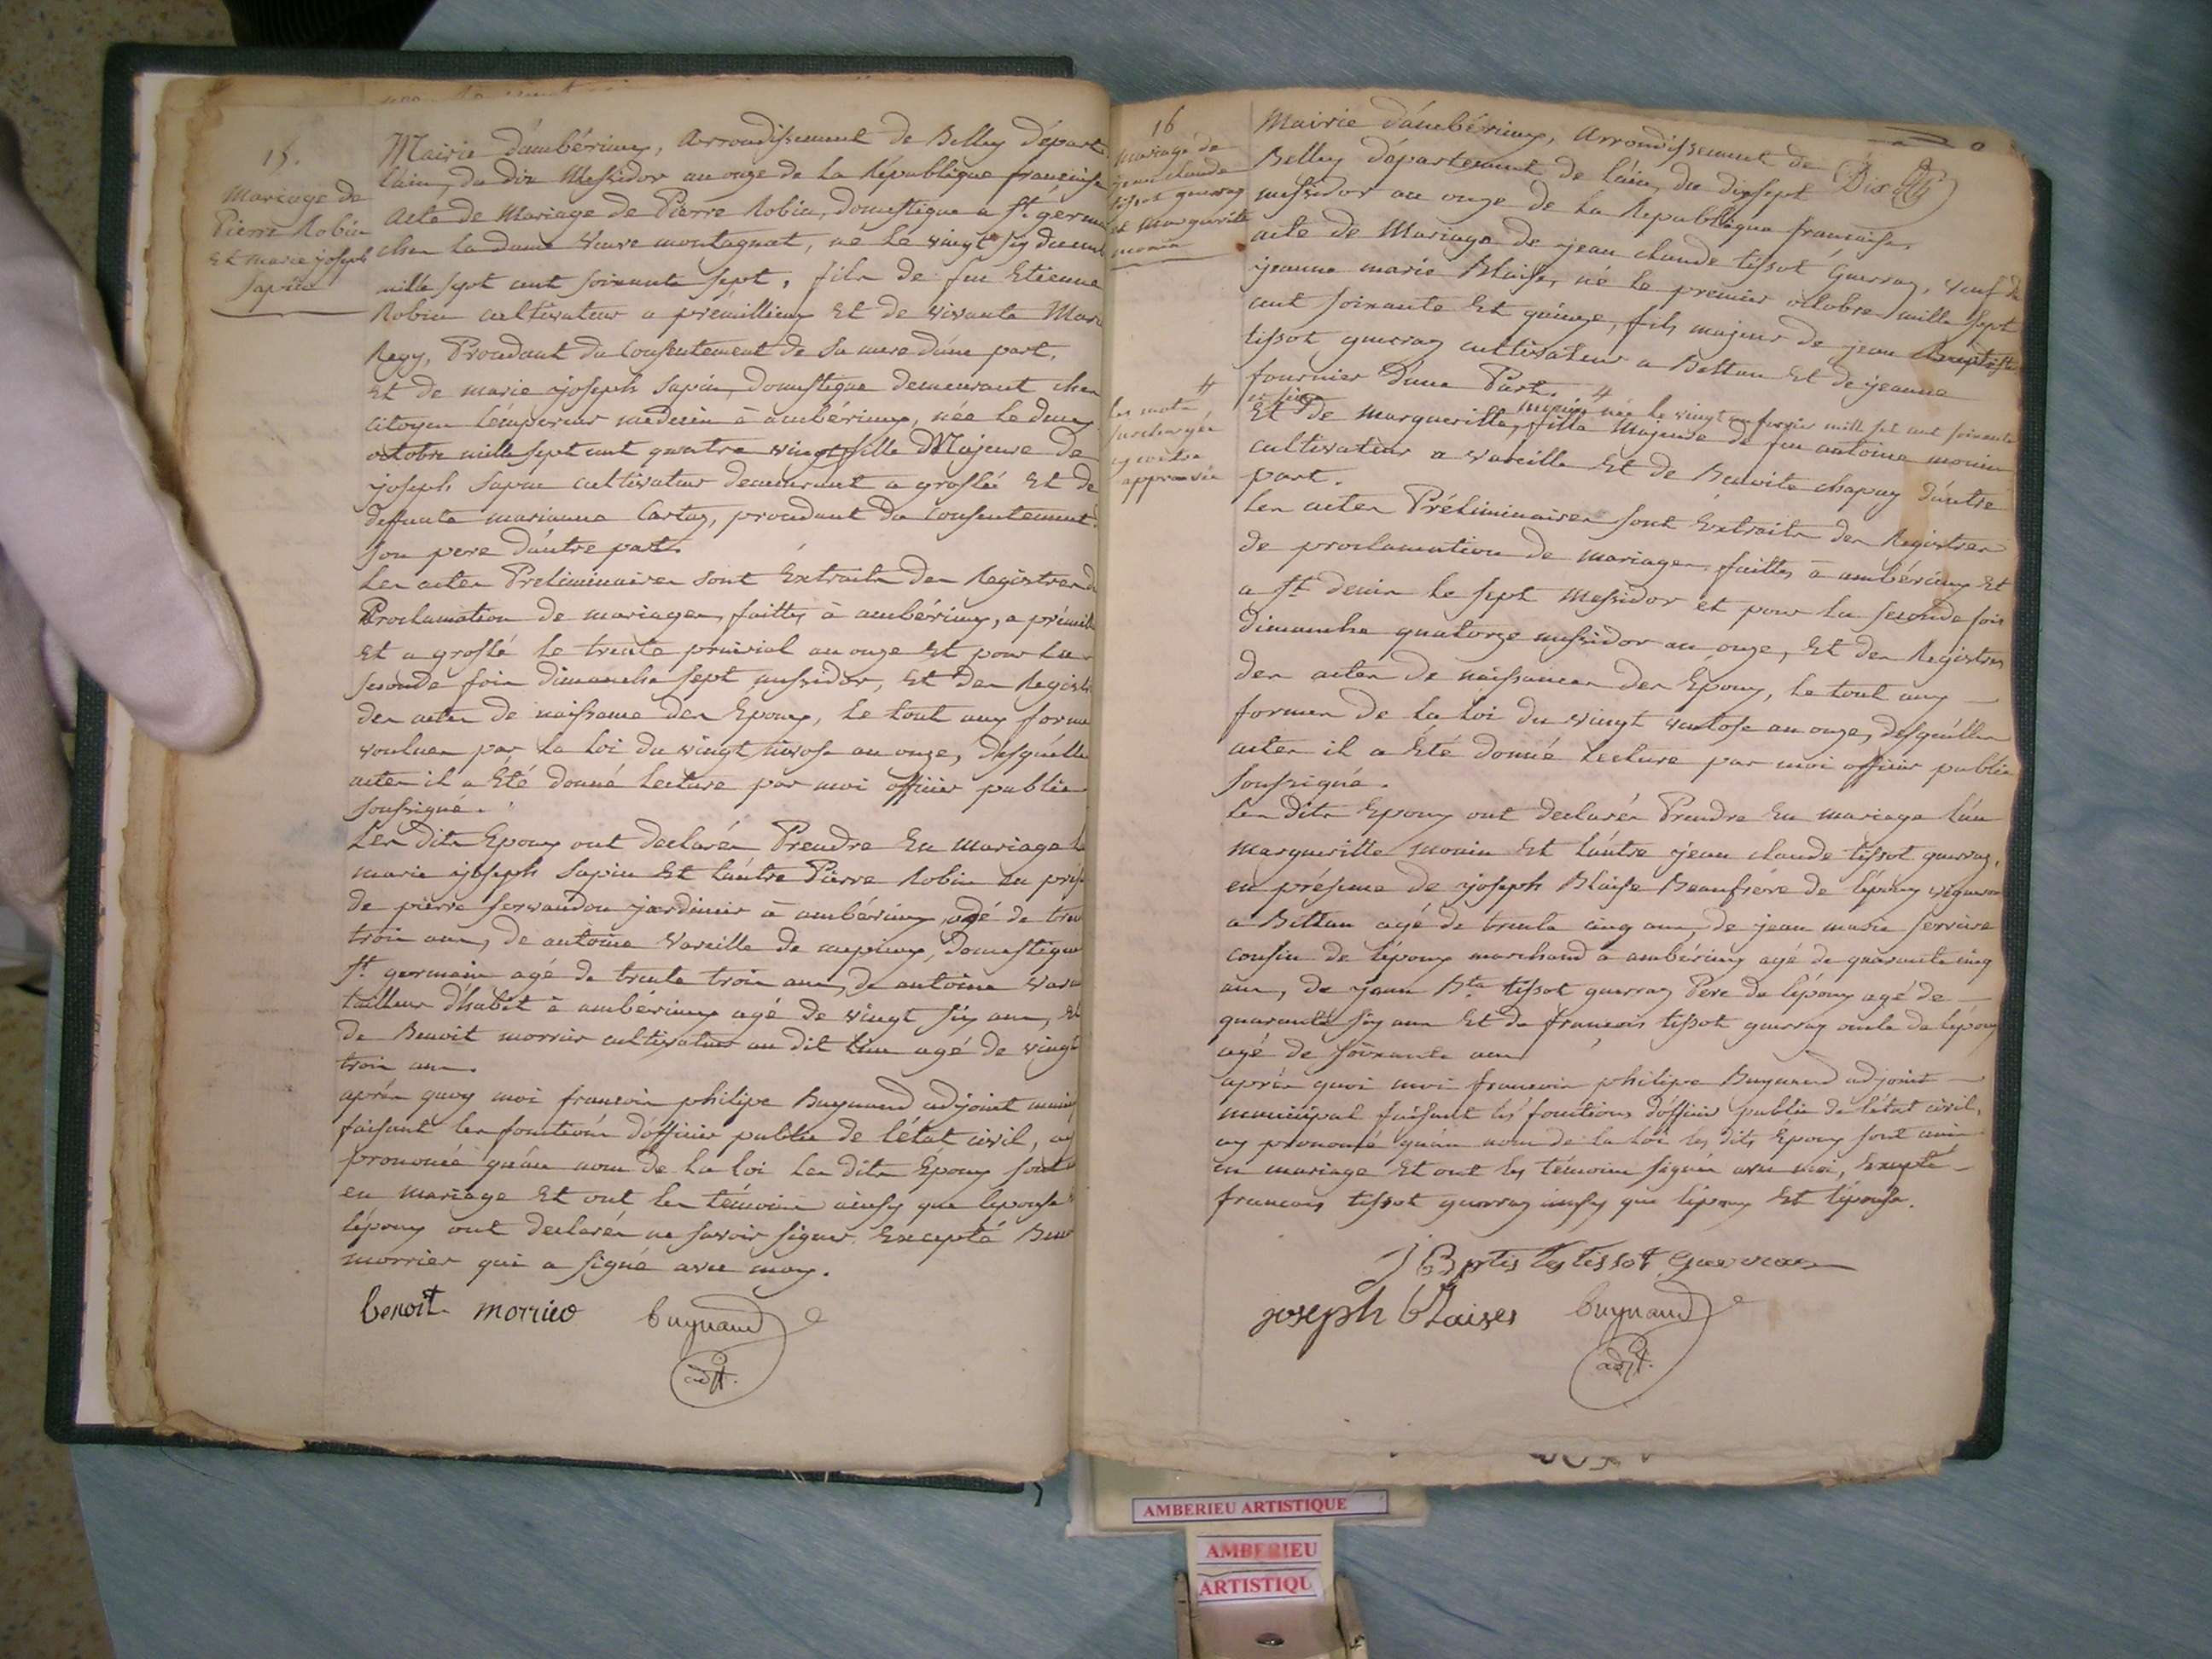 15.
Mariage de
Pierre Robin
Et marie joseph
Sapin
Mairie d'ambérieux, Arrondissement de Belley départ
lain, du dix Messidor an onze de la République française
Acte de Mariage de Pierre Robin, domestique a St. germain
chez la dame veuve montagnat, né le vingt six
mille sept cent soixante sept, fils de feu Etienne
Robin cultivateur a premillieux Et de vivante Mar
Regy, Procedant du Consentement de sa mere d'une part,
Et de marie joseph Sapin, domestique demeurant chez
citoyen l'empereur medecin à ambérieux, née le deux
octobre mille sept cent quatre vingt fille Majeure de
joseph Sapin cultivateur demeurant a groslée Et de
deffunte marianne Cartaz, procedant du Consentement
son pere d'autre part.
Les actes Preliminaires sont Extraits des Registres d
Proclamation de mariages, faittes à ambérieux, a prémil
Et a groslé le trente prairial an onze Et pour la
seconde fois dimanche sept messidor, Et des Registr
des actes de naissance des Epoux, le tout aux forme
voulues par la loi du vingt ventose an onze, desquelle
actes il a Eté donné lecture par moi officier public
soussigné.
Les dits Epoux ont déclarés Prendre En mariage l
marie joseph Sapin Et l'autre Pierre Robin en prés
de pierre servandon jardinier à ambérieux agé de tren
trois ans, de antoine Vareille de nepieux, domestique
St germain agé de trente trois ans, de antoine Vare
tailleur d'habit à ambérieux agé de vingt six ans, Et
de Benoit morrier cultivateur au dit lieu agé de vingt
trois ans.
après quoy moi francois philipe Buynand adjoint munic
faisant les fonctions d'officier public de l'état civil, ay
prononcé qu'au nom de la loi les dits Epoux sont
en mariage Et ont les témoins ainsy que lepouse
l'époux ont déclarés ne savoir signer Excepté Ben
morrier qui a signé avec moy.
benoit morrier buynand
adjt.
16
mariage de
jean claude
tissot guerraz
et marguerite
monin
#
les mots
surchargés
cy contre
approuvés
Mairie d'ambérieux, Arrondissement de
Belley département de l'ain, du dix sept
messidor an onze de la République française.
acte de Mariage de jean claude tissot Guerraz, veuf de
jeanne marie Blaise, né le premier octobre mille sept
cent soixante Et quinze, fils majeur de jean baptiste
tissot guerraz cultivateur a Bettan Et de jeanne
fournier d'une Part.
Et de Marguerite, fille Majeure de feu antoine monin
cultivateur a vareille Et de Benoite chapuy d'autre
part.
Les actes Préliminaires sont Extraits des Registres
de proclamation de mariages, faittes à ambérieux Et
a St denis le sept messidor et pour la seconde fois
dimanche quatorze messidor an onze, Et des Registres
des actes de naissances des Epoux, le tout aux
formes de la loi du vingt ventose an onze, desquelles
actes il a Eté donné lecture par moi officier public
soussigné.
Les dits Epoux ont déclarés Prendre En mariage l'un
Marguerite Monin Et l'autre jean claude tissot guerraz,
en présence de joseph Blaise Beaufrére de l'époux vigneron
a Bettan agé de trente cinq ans, de jean marie serviere
cousin de l'époux marchand à ambérieux agé de quarante cinq
ans, de jean Bte tissot guerraz Pere de l'époux agé de
quarante six ans Et de françois tissot guerraz oncle de l'époux
agé de soixante ans.
après quoi moi francois philipe Buynand adjoint
municipal faisant les fonctions d'officier public de l'état civil,
ay prononcé qu'au nom de la loi les dits Epoux sont unis
en mariage Et ont les témoins signés avec moi, Excepté
francois tissot guerraz ainsy que l'époux Et l'épouse.
joseph blaises buynand
adjt.
AMBERIEU ARTISTIQUE
AMBERIEU
ARTISTIQU